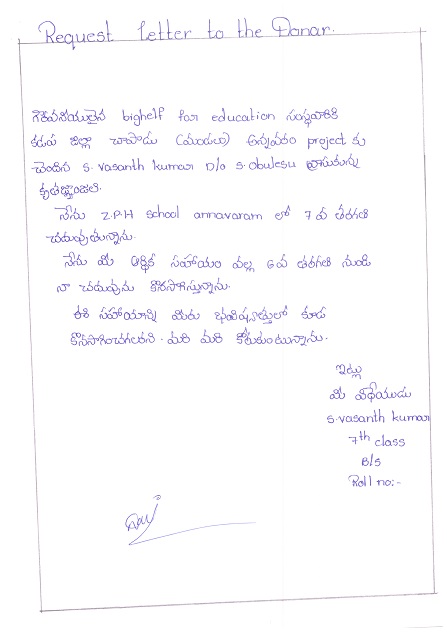 Request Letter to the Donar.
గౌరవనీయులైన bighelf for education సంస్థవారికి
కడప జిల్లా చాపాడు (మండలం) అన్నవరం project కు
చెందిన s. vasanth kumar D/o s. obulesu వ్రాసుకున్న
కృతజ్ఞతాంజలి.
నేను Z.P.H school annavaram లో 7 వ తరగతి
చదువుతున్నాను.
నేను మీ ఆర్థిక సహాయం వల్ల 6వ తరగతి నుండి
నా చదువును కొనసాగిస్తున్నాను.
ఈ సహాయాన్ని మీరు భవిష్యత్తులో కూడ
కొనసాగించగలరని మరి మరి కోరుకుంటున్నాను.
ఇట్లు
మీ విధేయుడు
s. vasanth kumar
7th class
B/s
Roll no:-